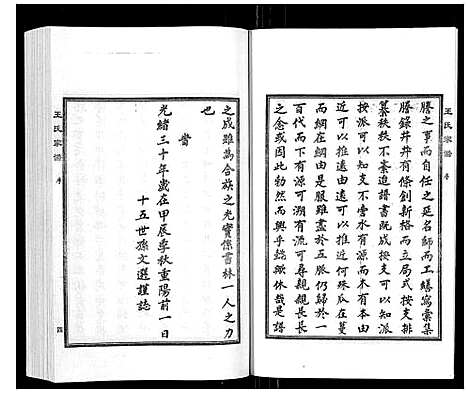 王氏家譜 序
謄之事而自任之延名師而工繕寫彙集
謄錄井井有條創新格而立局式按支排
纂秩秩不紊迨譜書既成按支可以知
按派可以知支不啻水有源而木有本由
近可以推遠由遠可以及近何殊瓜在蔓
而綱在綱由是服雖盡於五脈仍歸於一
百代而下有源可溯有流可尋親親長長
之念或因此然而興乎懿歟休哉是譜
王氏家譜 序
之成雖為合族之光實係書林一人之力
也
嘗
光緒三十年歲在甲辰季秋重陽前一日
十五世孫文選謹誌
四